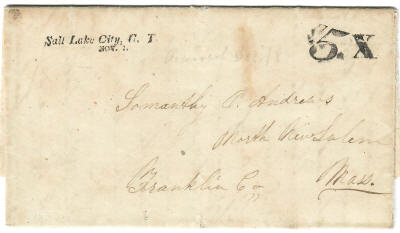 Salt Lake City, U. T.
NOV. 1.
5 X
Samantha P. Andrews
North New Salem
Franklin Co
Mass.